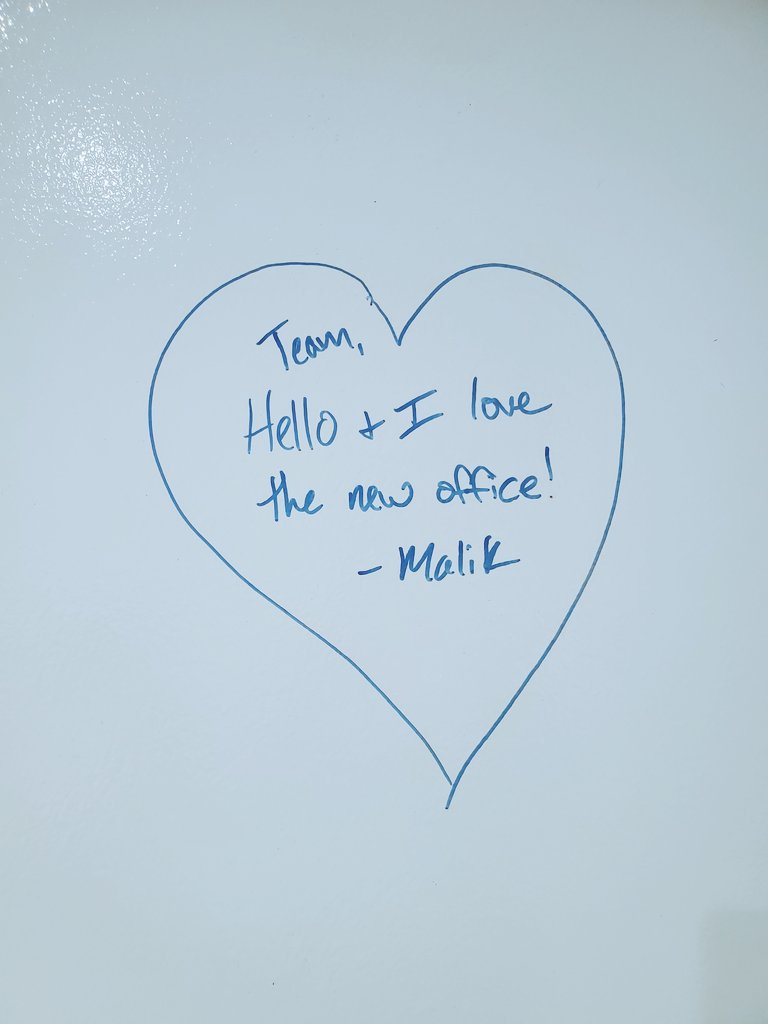 Team,
Hello + I love
the new office!
- Malik